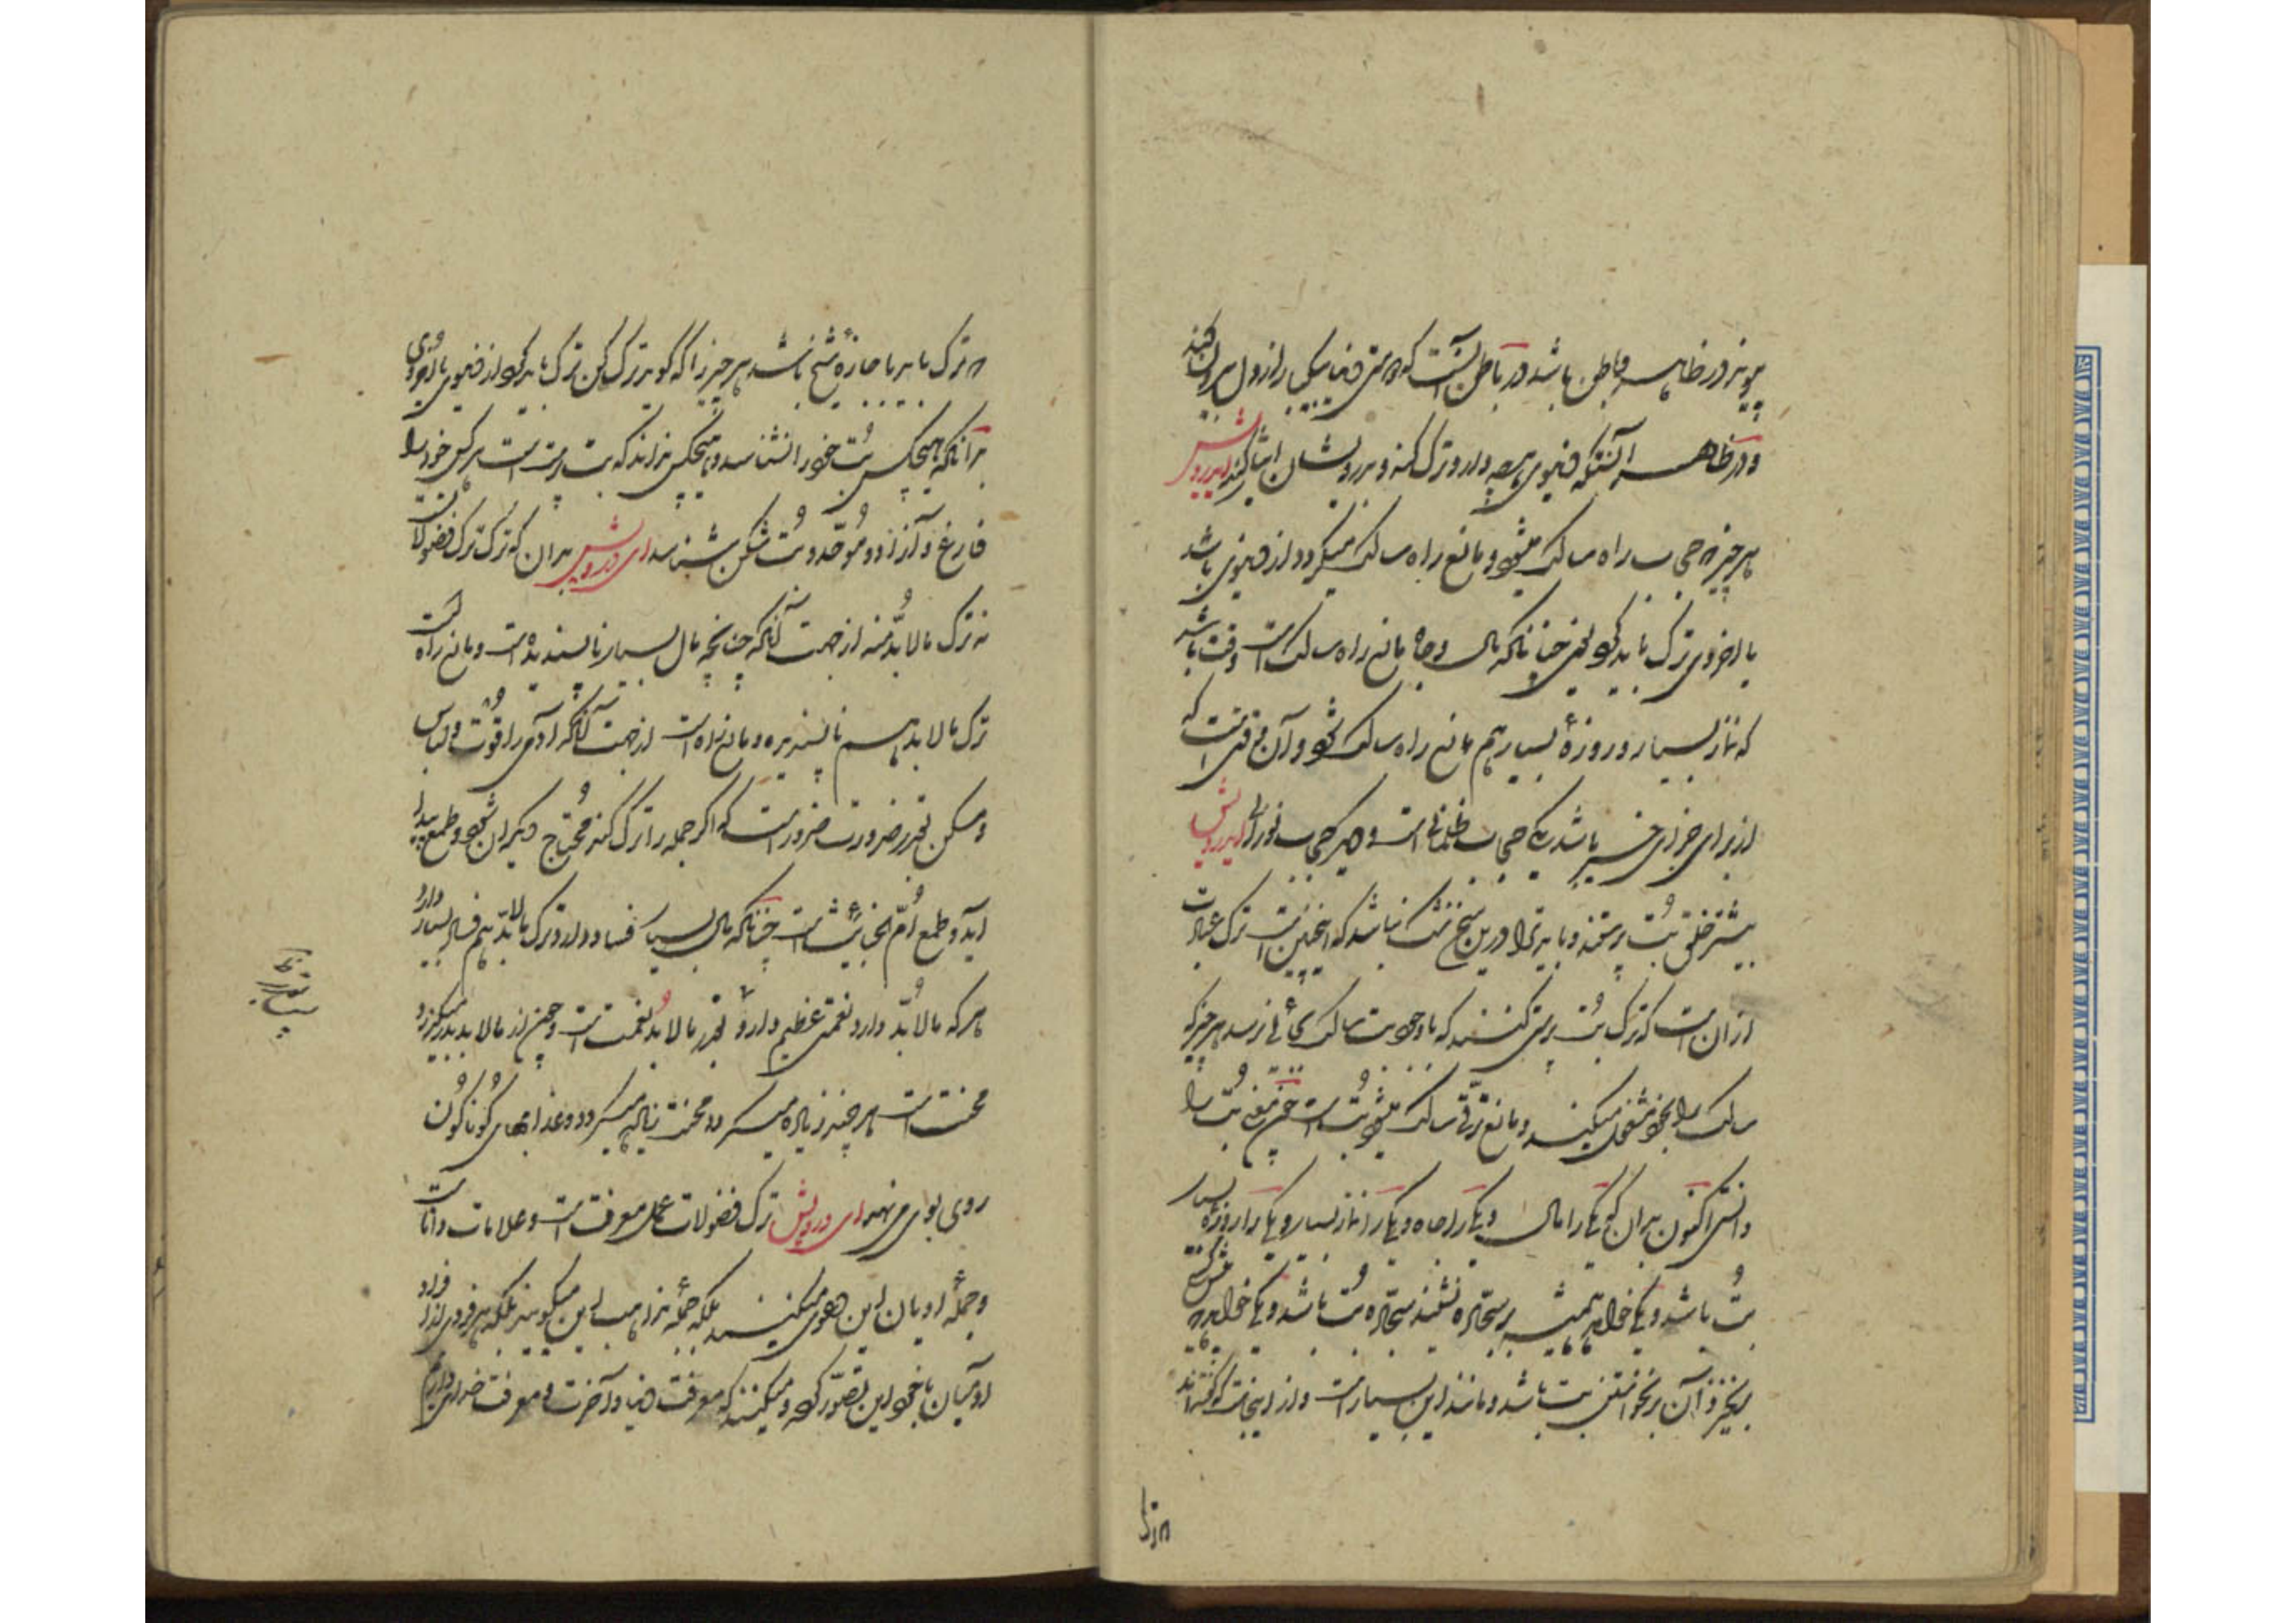 پیوند در ظاهر و باطن باشد در باطن آنست که دوستی دنیا بکلی از دل بیرون کند
و در ظاهر آنستکه دنیوی هرچه دارد ترک کند و بدرویشان ایثار کند ای درویش
هر چیز که حجاب راه سالک میشود و مانع راه سالک میگردد از دنیوی باشد
یا اخروی ترک باید کرد یعنی چنانکه مال و جاه مانع راه سالک است وقت باشد
که نماز بسیار و روزهٔ بسیار هم مانع راه سالک شود و آن وقتی است که
از برای جزای خیر باشد یکی حجاب ظلمانی است و دیگر حجاب نورانی ای درویش
بیشتر خلق بت پرستند و باید ترا درین سخن شک نباشد که اینچنین است ترک عبارت
از ان است که ترک بت پرستی کنند که با وجود بت سالک بجائی نرسد هر چیز که
سالک را بخود مشغول میکند و مانع ترقی سالک میشود بت است چون معنی بت را
دانستی اکنون بدان که یکی را مال و یکی را جاه و یکی را نماز بسیار و یکی را روزهٔ بسیار
بت باشد و یکی خواهد همیشه بر سجاده نشیند سجاده بت باشد و یکی خواهد که پیش کس
برنخیزد آن برنخواستن بت باشد و مانند این بسیار است و از اینجا گفته‌اند
که ترک باید باجازهٔ شیخ باشد هر چیز را که گوید ترک کن ترک باید کرد از دنیوی یا اخروی
بدانکه هیچکس بت خود را نشناسد و هیچکس نداند که بت پرست است هر کس خود را
فارغ و آزاد و موحد و بت شکن شناسد ای درویش بدان که ترک ترک فضولات است
نه ترک مالابد منه از جهت آنکه چنانچه مال بسیار ناپسندیده است و مانع راه است
ترک مالابد هم ناپسندیده و مانع راه است از جهت آنکه آدمی را قوت و لباس
و مسکن بقدر ضرورت ضرور است که اگر جمله را ترک کند محتاج دیگران شود و طمع پیدا
آید و طمع ام الخبائث است چنانکه مال بسیار فساد دارد ترک مالابد هم فساد بسیار دارد
هر که مالابد دارد نعمتی عظیم دارد و بقدر مالابد نعمت است و چون از مالابد بدر میگذرد
محنت است هر چند زیاده میگردد محنت زیاده میگردد و عذابهای گوناگون
روی بوی می نهد ای درویش ترک فضولات عمل معرفت است و علامات دانا است
و جملهٔ ادیان این دعوی میکنند بلکه جملهٔ مذاهب این میگویند بلکه هر فردی از افراد
آدمیان با خود این تصور کرده و میکنند که معرفت دنیا و آخرت و معرفت خدای داریم